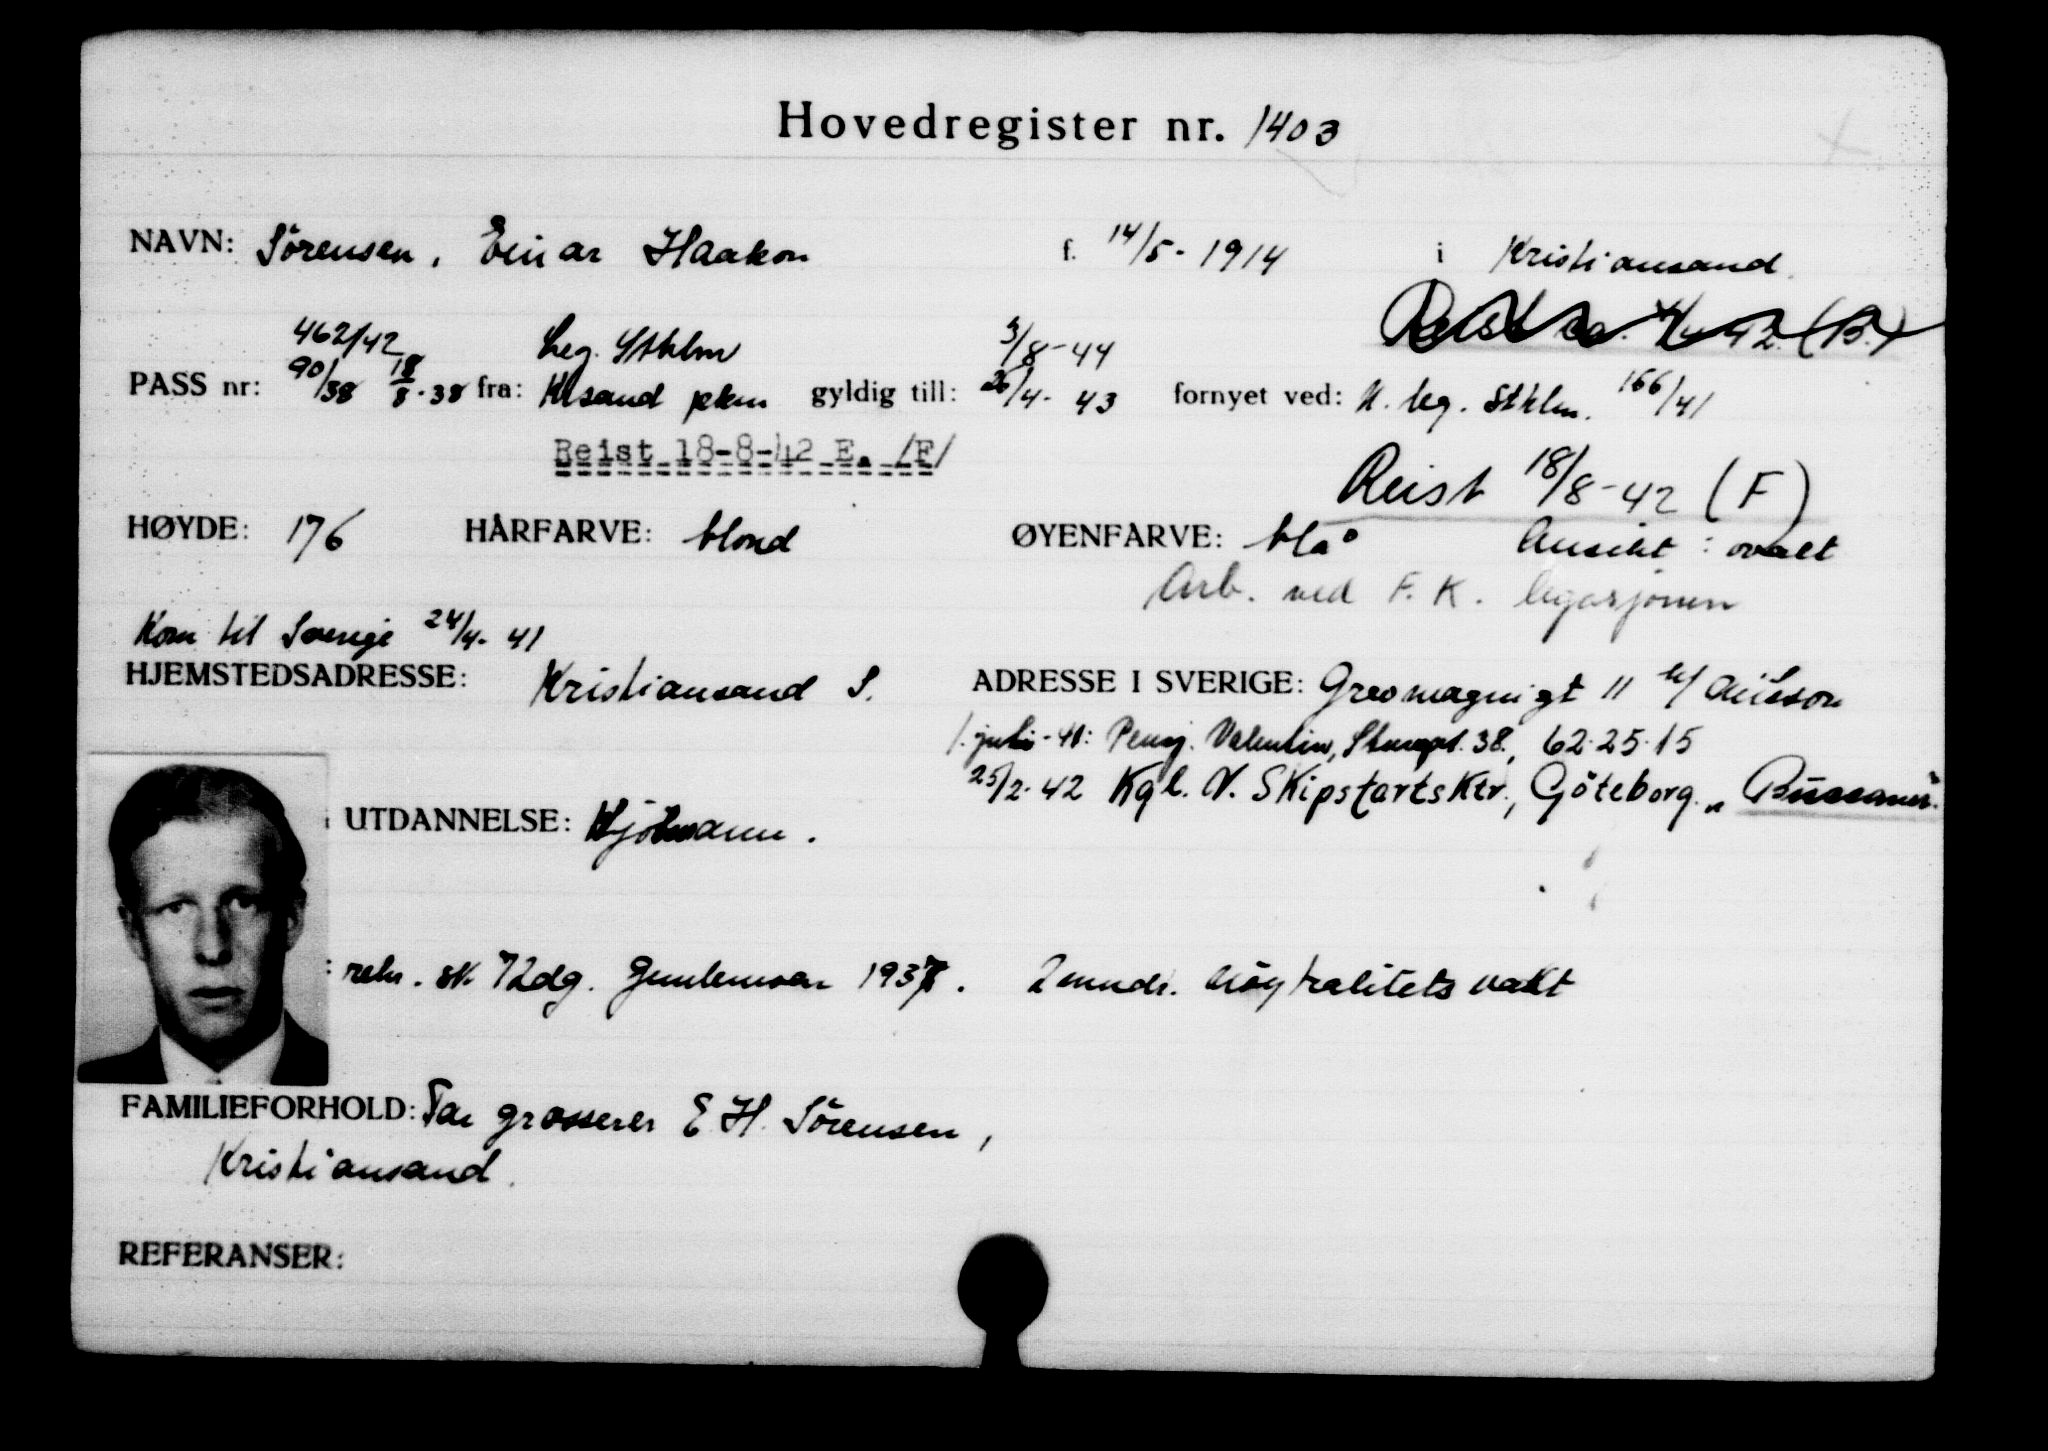 Hovedregister nr. 1403
NAVN: Sörensen, Einar Haakon f. 14/5-1914 i Kristiansand.
462/42 Leg. Sthlm 3/8-44
PASS nr: 90/38 18/8-38 fra: Krsand pkm gyldig till: 26/4-43 fornyet ved: N. leg. Sthlm. 166/41
Reist 18-8-42 E. /F/
Reist 18/8-42 (F)
HØYDE: 176 HÅRFARVE: blond ØYENFARVE: blå Ansikt: ovalt
Arb. ved F. K. legasjonen
Kom til Sverige 24/4-41
HJEMSTEDSADRESSE: Kristiansand S. ADRESSE I SVERIGE: Grevmagnigt 11
1. juli-41: Pensj. Valentin, Sturegt. 38, 62.25.15
25/2-42 Kgl. N. Skipsfartsktr., Göteborg.
UTDANNELSE: Sjömann.
: rekr. sk 72dg. Gimlemoen 1937. 2 mndr. nöytralitetsvakt
FAMILIEFORHOLD: Far grosserer E. H. Sörensen,
Kristiansand.
REFERANSER: